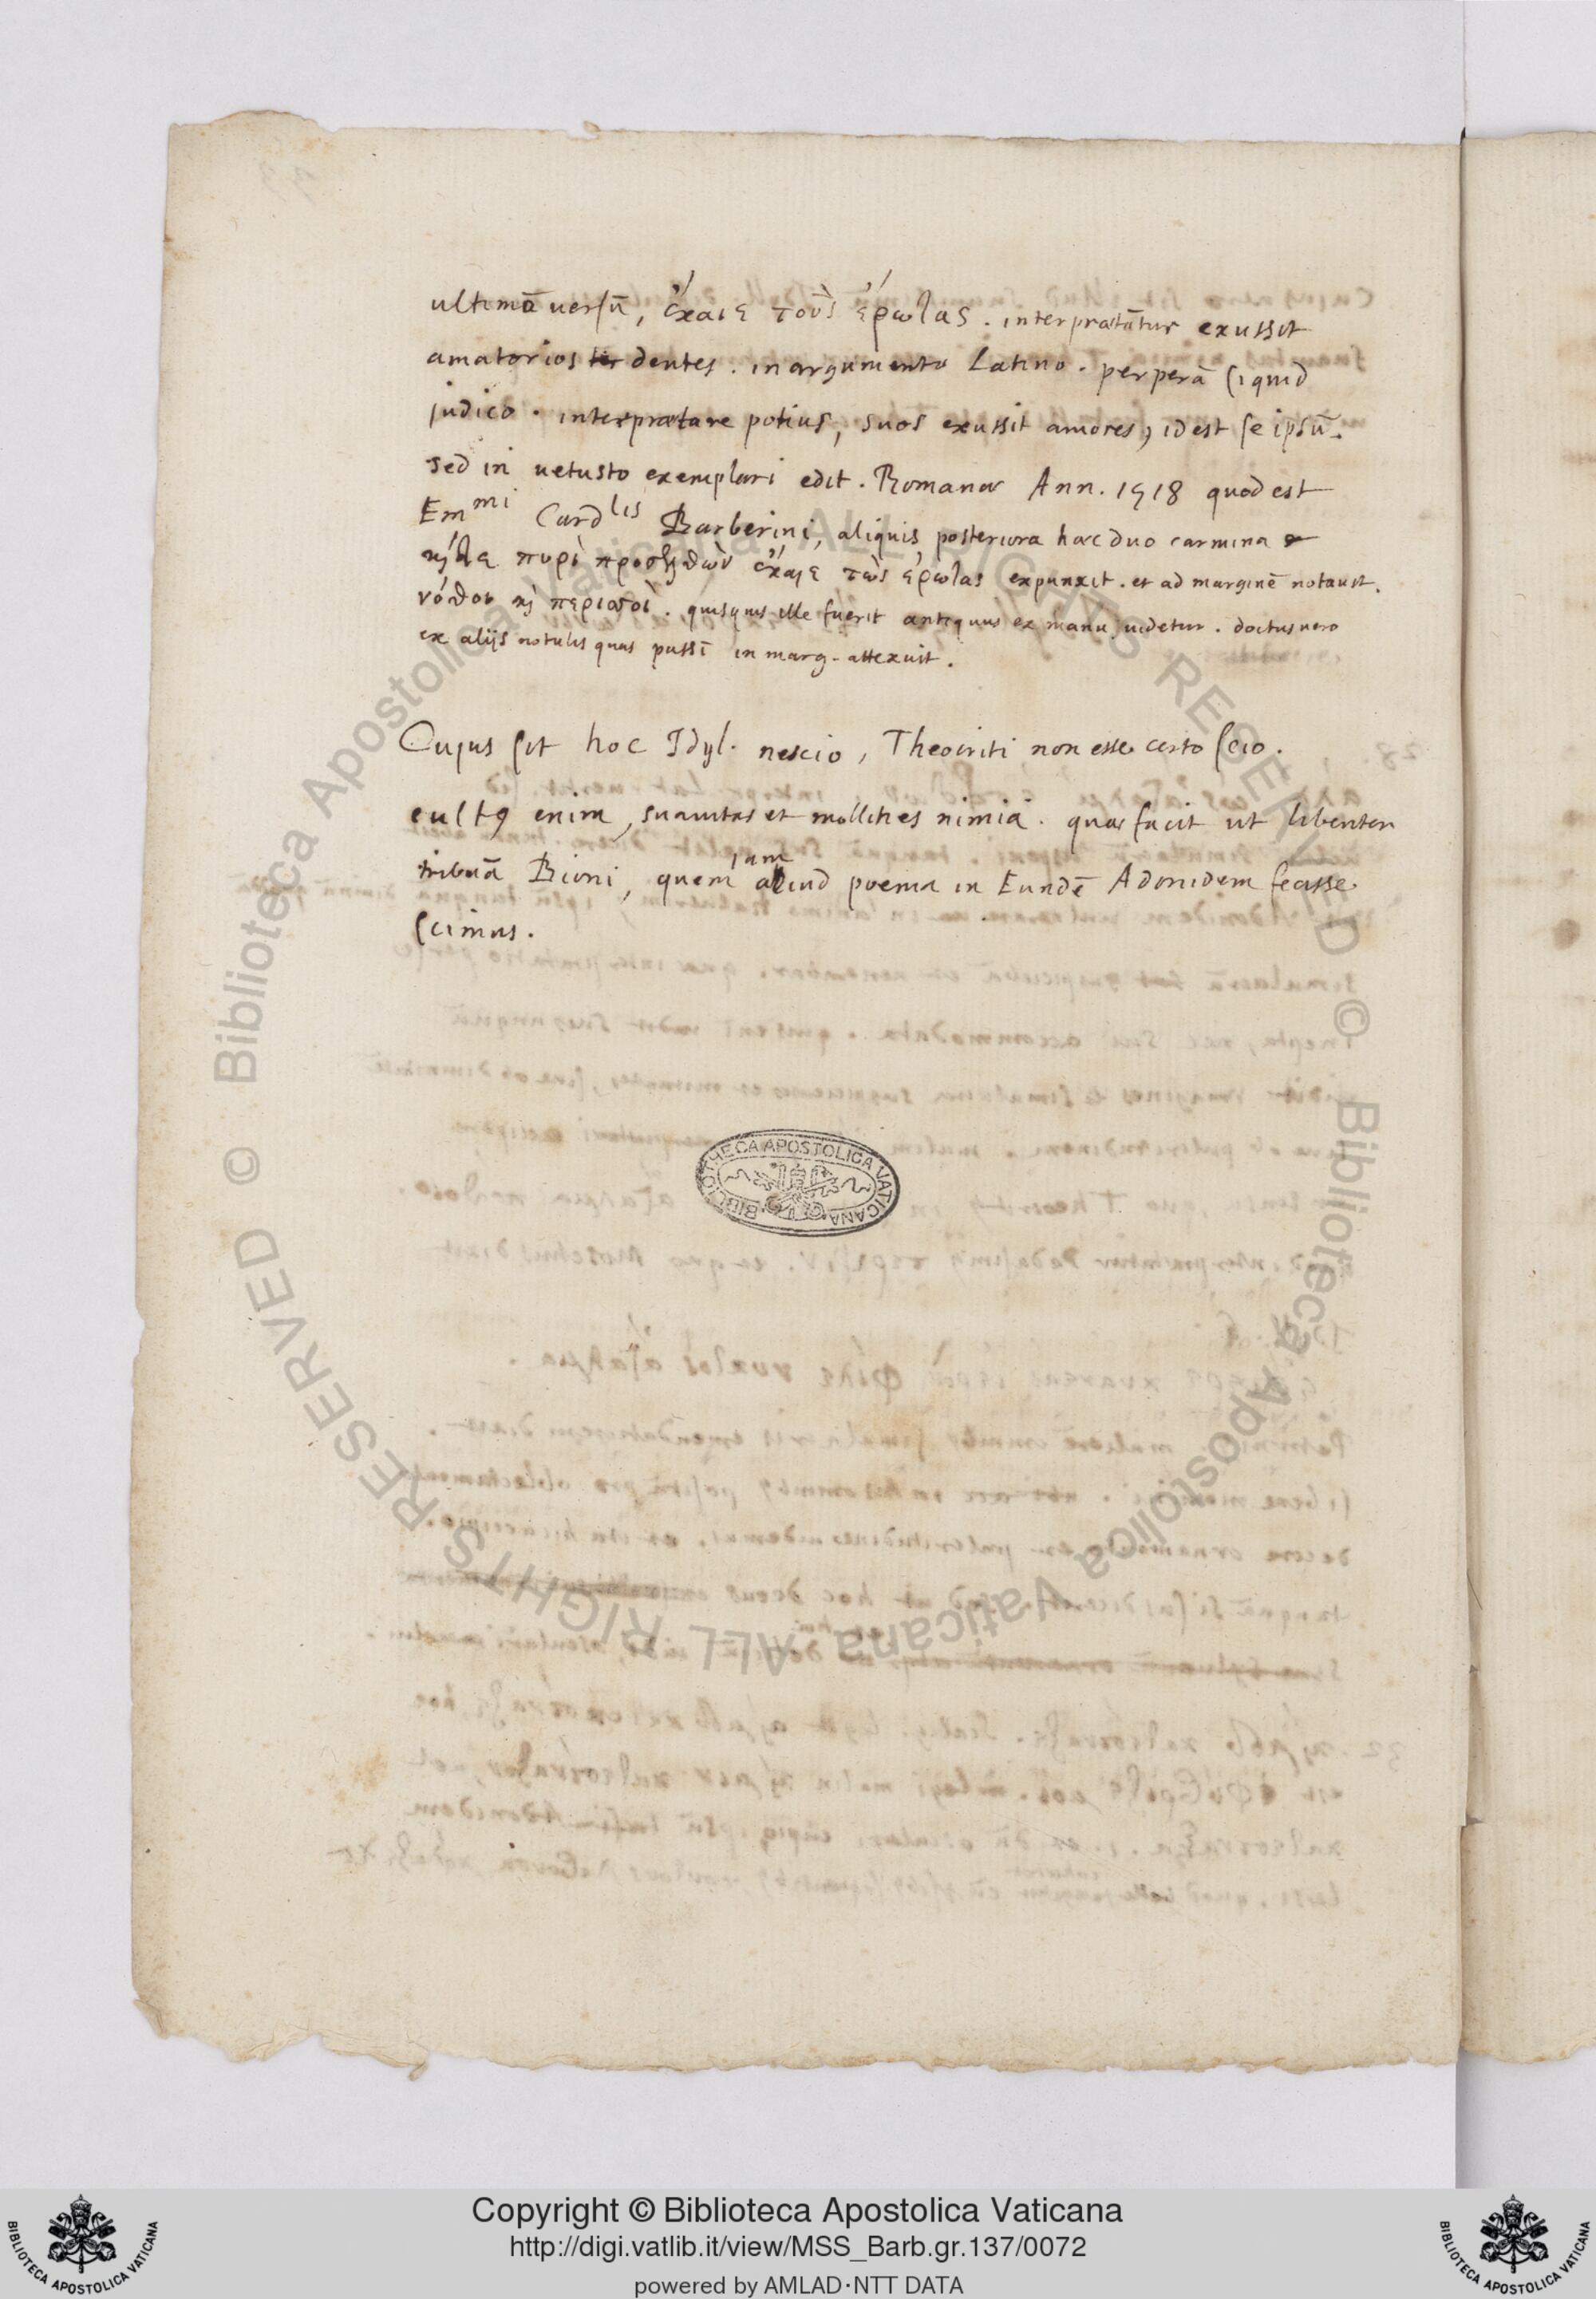 ultimā uersū, ἔκαιε τοὺς ἔρωτας . interpraetātur exussit
amatorios dentes . in argumento Latino . perperā siquid
judico . interpraetare potius, suos exussit amores, id est se ipsū.
sed in uetusto exemplari edit . Romanae Ann. 1518 quod est
Emmi Cardlis Barberini, aliquis posteriora haec duo carmina
πυρὶ ἔκαιε τὼς ἔρωτας expunxit . et ad marginē notauit.
νόθοι περισσοὶ . quisquis ille fuerit antiquus ex manu uidetur . doctus uero
ex alijs notulis quas passī in marg. attexuit .
Cujus sit hoc Idyl. nescio, Theocriti non esse certo scio .
cultꝯ enim, suauitas et mollities nimia . quae facit ut libenter
tribuā Bioni, quem iam aliud poema in Eundē Adonidem fecisse
scimus .
BIBLIOTHECA APOSTOLICA VATICANA
© Biblioteca Apostolica Vaticana ALL RIGHTS RESERVED
© Biblioteca Apostolica Vaticana ALL RIGHTS RESERVED
Copyright © Biblioteca Apostolica Vaticana
http://digi.vatlib.it/view/MSS_Barb.gr.137/0072
powered by AMLAD·NTT DATA
BIBLIOTECA APOSTOLICA VATICANA
BIBLIOTECA APOSTOLICA VATICANA